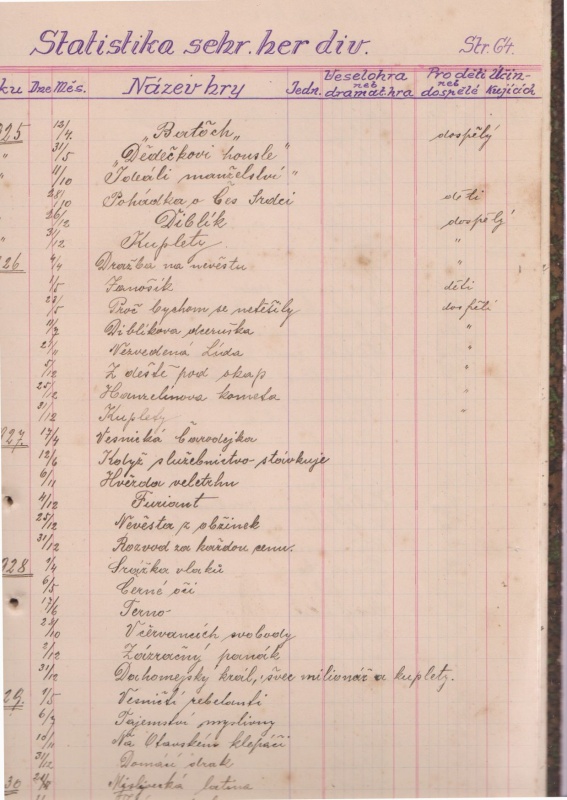 Statistika sehr. her div. Str. 64.
ku Dne Měs. Název hry Jedn. Veselohra neb dramat. hra Pro děti neb dospělé Účin- kujících
925 12/4. „Batôch„ dospělý
" 31/5 „Dědečkovi housle"
" 11/10 Ideáli manželství"
28/10 Pohádka o Čes Srdci děti
" 26/12 Diblík dospělý
" 31/12 Kuplety "
926 4/4 Dražba na nevěstu "
1/5 Janošík děti
23/5 Proč bychom se netěšily dospěti
11/7 Diblíkova dceruška "
21/11 Nezvedená Lída "
5/12 Z deště pod okap "
25/12 Hamelínova kometa "
31/12 Kuplety "
927. 17/4 Vesnická Čarodejka
12/6 Když služebnictvo stávkuje
6/11 Hvězda veletrhu
4/12 Furiant
25/12 Nevěsta z obžinek
31/12 Rozvod za každou cenu.
928 9/4 Srážka vlaků
6/5 Černé oči
17/6 Terno
28/10 V červancích svobody
2/12 Zázračný panák
31/12 Dahomejský král, švec milionář a kuplety.
29. 9/5 Vesničtí rebelanti
6/7 Tajemství myslivny
10/11 Na Otavském klepáči
31/12 Domácí drak
30 Myslivecká latina